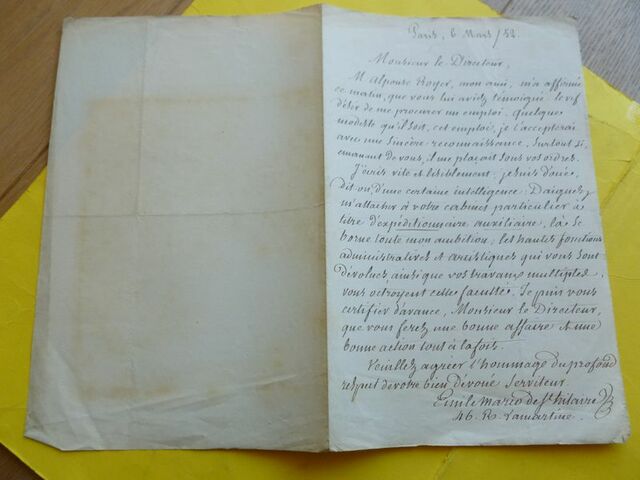 Paris, 6 Mars / 52.
Monsieur le Directeur,
M. Alponse Royer, mon ami, m'a affirmé
ce matin, que vous lui aviez témoigné le vif
désir de me procurer un emploi. Quelque
modeste qu'il soit, cet emploi, je l'accepterai
avec une sincère reconnaissance, surtout si
émanant de vous, il me plaçait sous vos ordres.
J'écris vite et lisiblement; je suis doué,
dit-on, d'une certaine intelligence: Daignez
m'attacher à votre cabinet particulier à
titre d'expéditionnaire auxiliaire, là se
borne toute mon ambition; les hautes fonctions
administratives et artistiques qui vous sont
dévolues, ainsi que vos travaux multiples
vous octroyent cette faculté. Je puis vous
certifier d'avance, Monsieur le Directeur,
que vous ferez une bonne affaire et une
bonne action tout à la fois.
Veuillez agréer l'hommage du profond
respect de votre bien dévoué serviteur
Emile Marco de St hilaire
46. R. Lamartine.